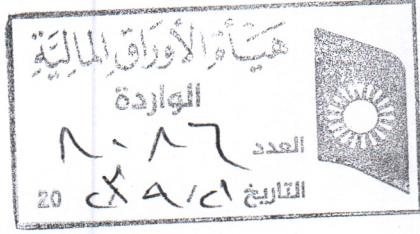 هيأة الأوراق المالية
الواردة
العدد ٨٠٨٦
التاريخ 20